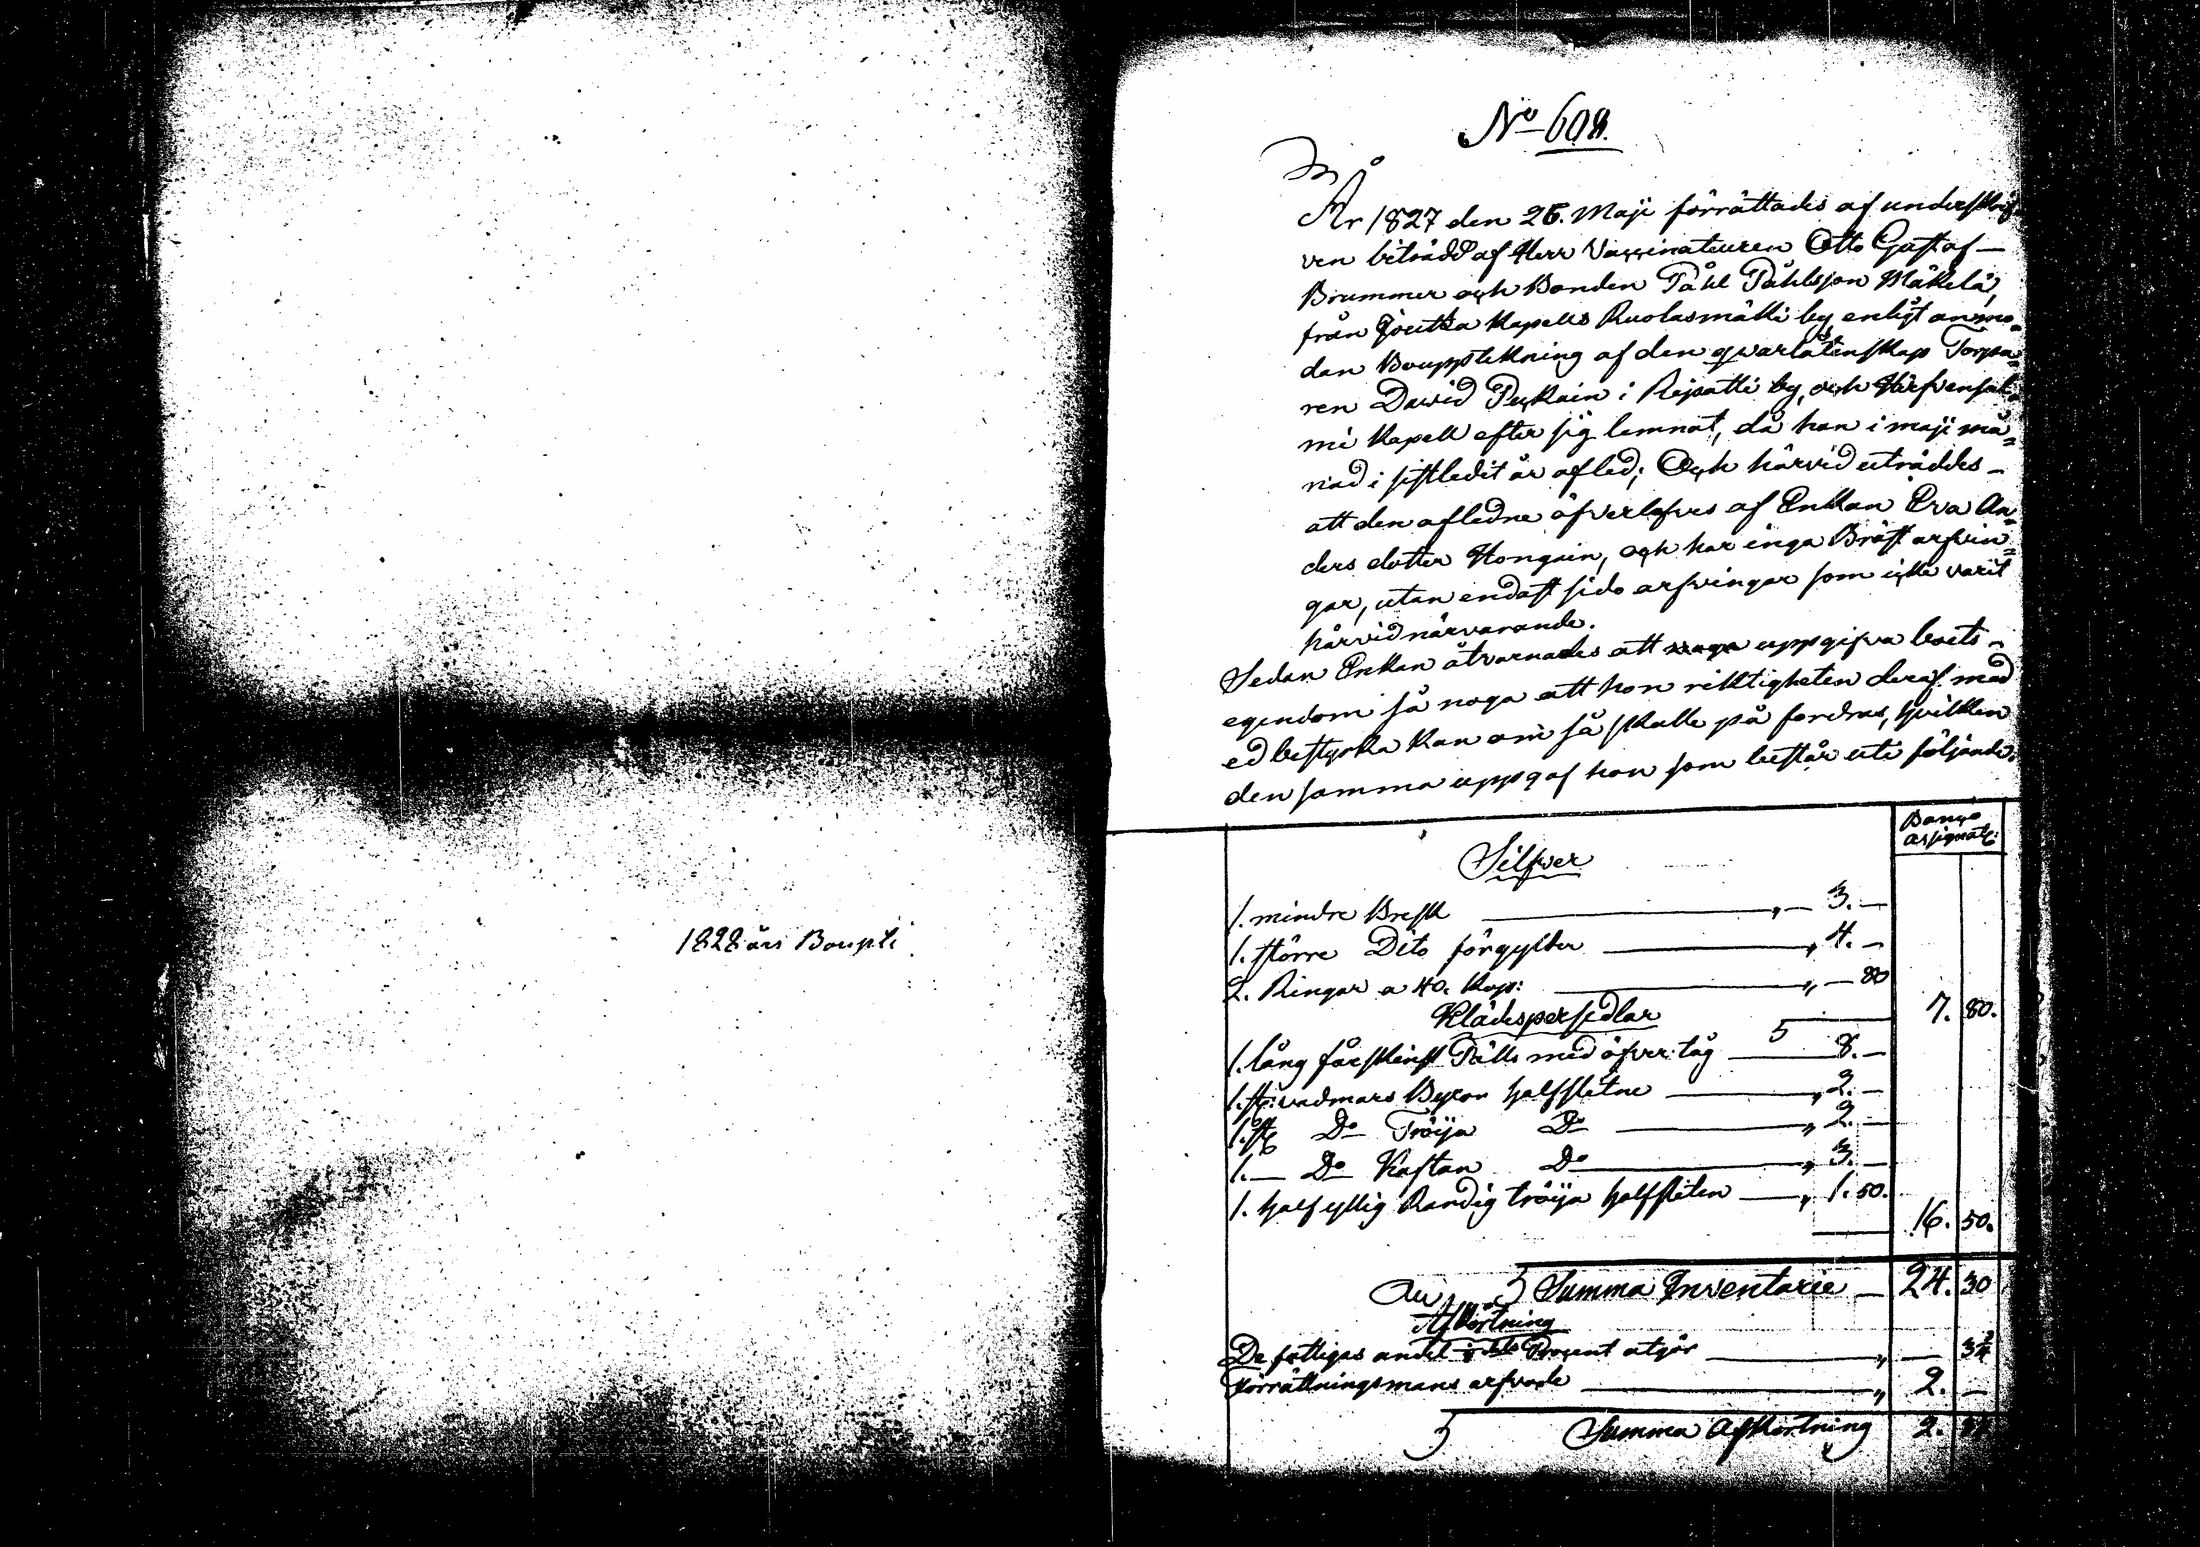 1828 års Bouplt
No 608.
År 1827 den 26. Maji förrättades af underskrif
ven biträdd af Herr Vaccinateuren Otto Gustaf
Brummer och Bonden Påhl Påhlsson Mäkelä,
från Joutsa Kapells Ruolasmäki by enligt anmo=
dan Bouppteckning af den qvarlåtenskap Torpa=
ren David Puckain i Ripatti by, och Hirfvensal=
mi Kapell efter sig lemnat, då han i maji må=
nad i sistledit år afled; Och härvid uträddes
att den afledne öfverlefves af Enkan Eva An=
ders dotter Hongain, och har inga Bröst arfvin=
gar, utan endast sido arfvingar som icke varit
härvid närvarande.
Sedan Enkan åtvarnades att uppgifva boets
egendom så noga att hon riktigheten deraf med
ed bestyrka kan om så skulle på fordras, hvilken
den samma uppgaf hon som består uti följande.
Banco
assignatr:
Silfver
1. mindre Bresk — „ — 3. —
1. större Dito förgylter — „ 4. —
2. Ringar a 40. Kop: — „ — 80
7. 80.
Klädespersedlar
1. lång fårskins Päls med öfver tåg — 8. —
1. st: vadmars Byxor halfslitne — „ 2. —
1. st Do Tröija Do — „ 2. —
1. — Do Kaftan Do — „ 3. —
1. halfyllig Randig tröija halfsliten — „ 1. 50.
16. 50.
Summa Inventarie — 24. 30
Afkortning
De fattigas andel Procent utgör — „ —
Förrättningsmans arfvode — „ 2. —
Summa Afkortning 2.